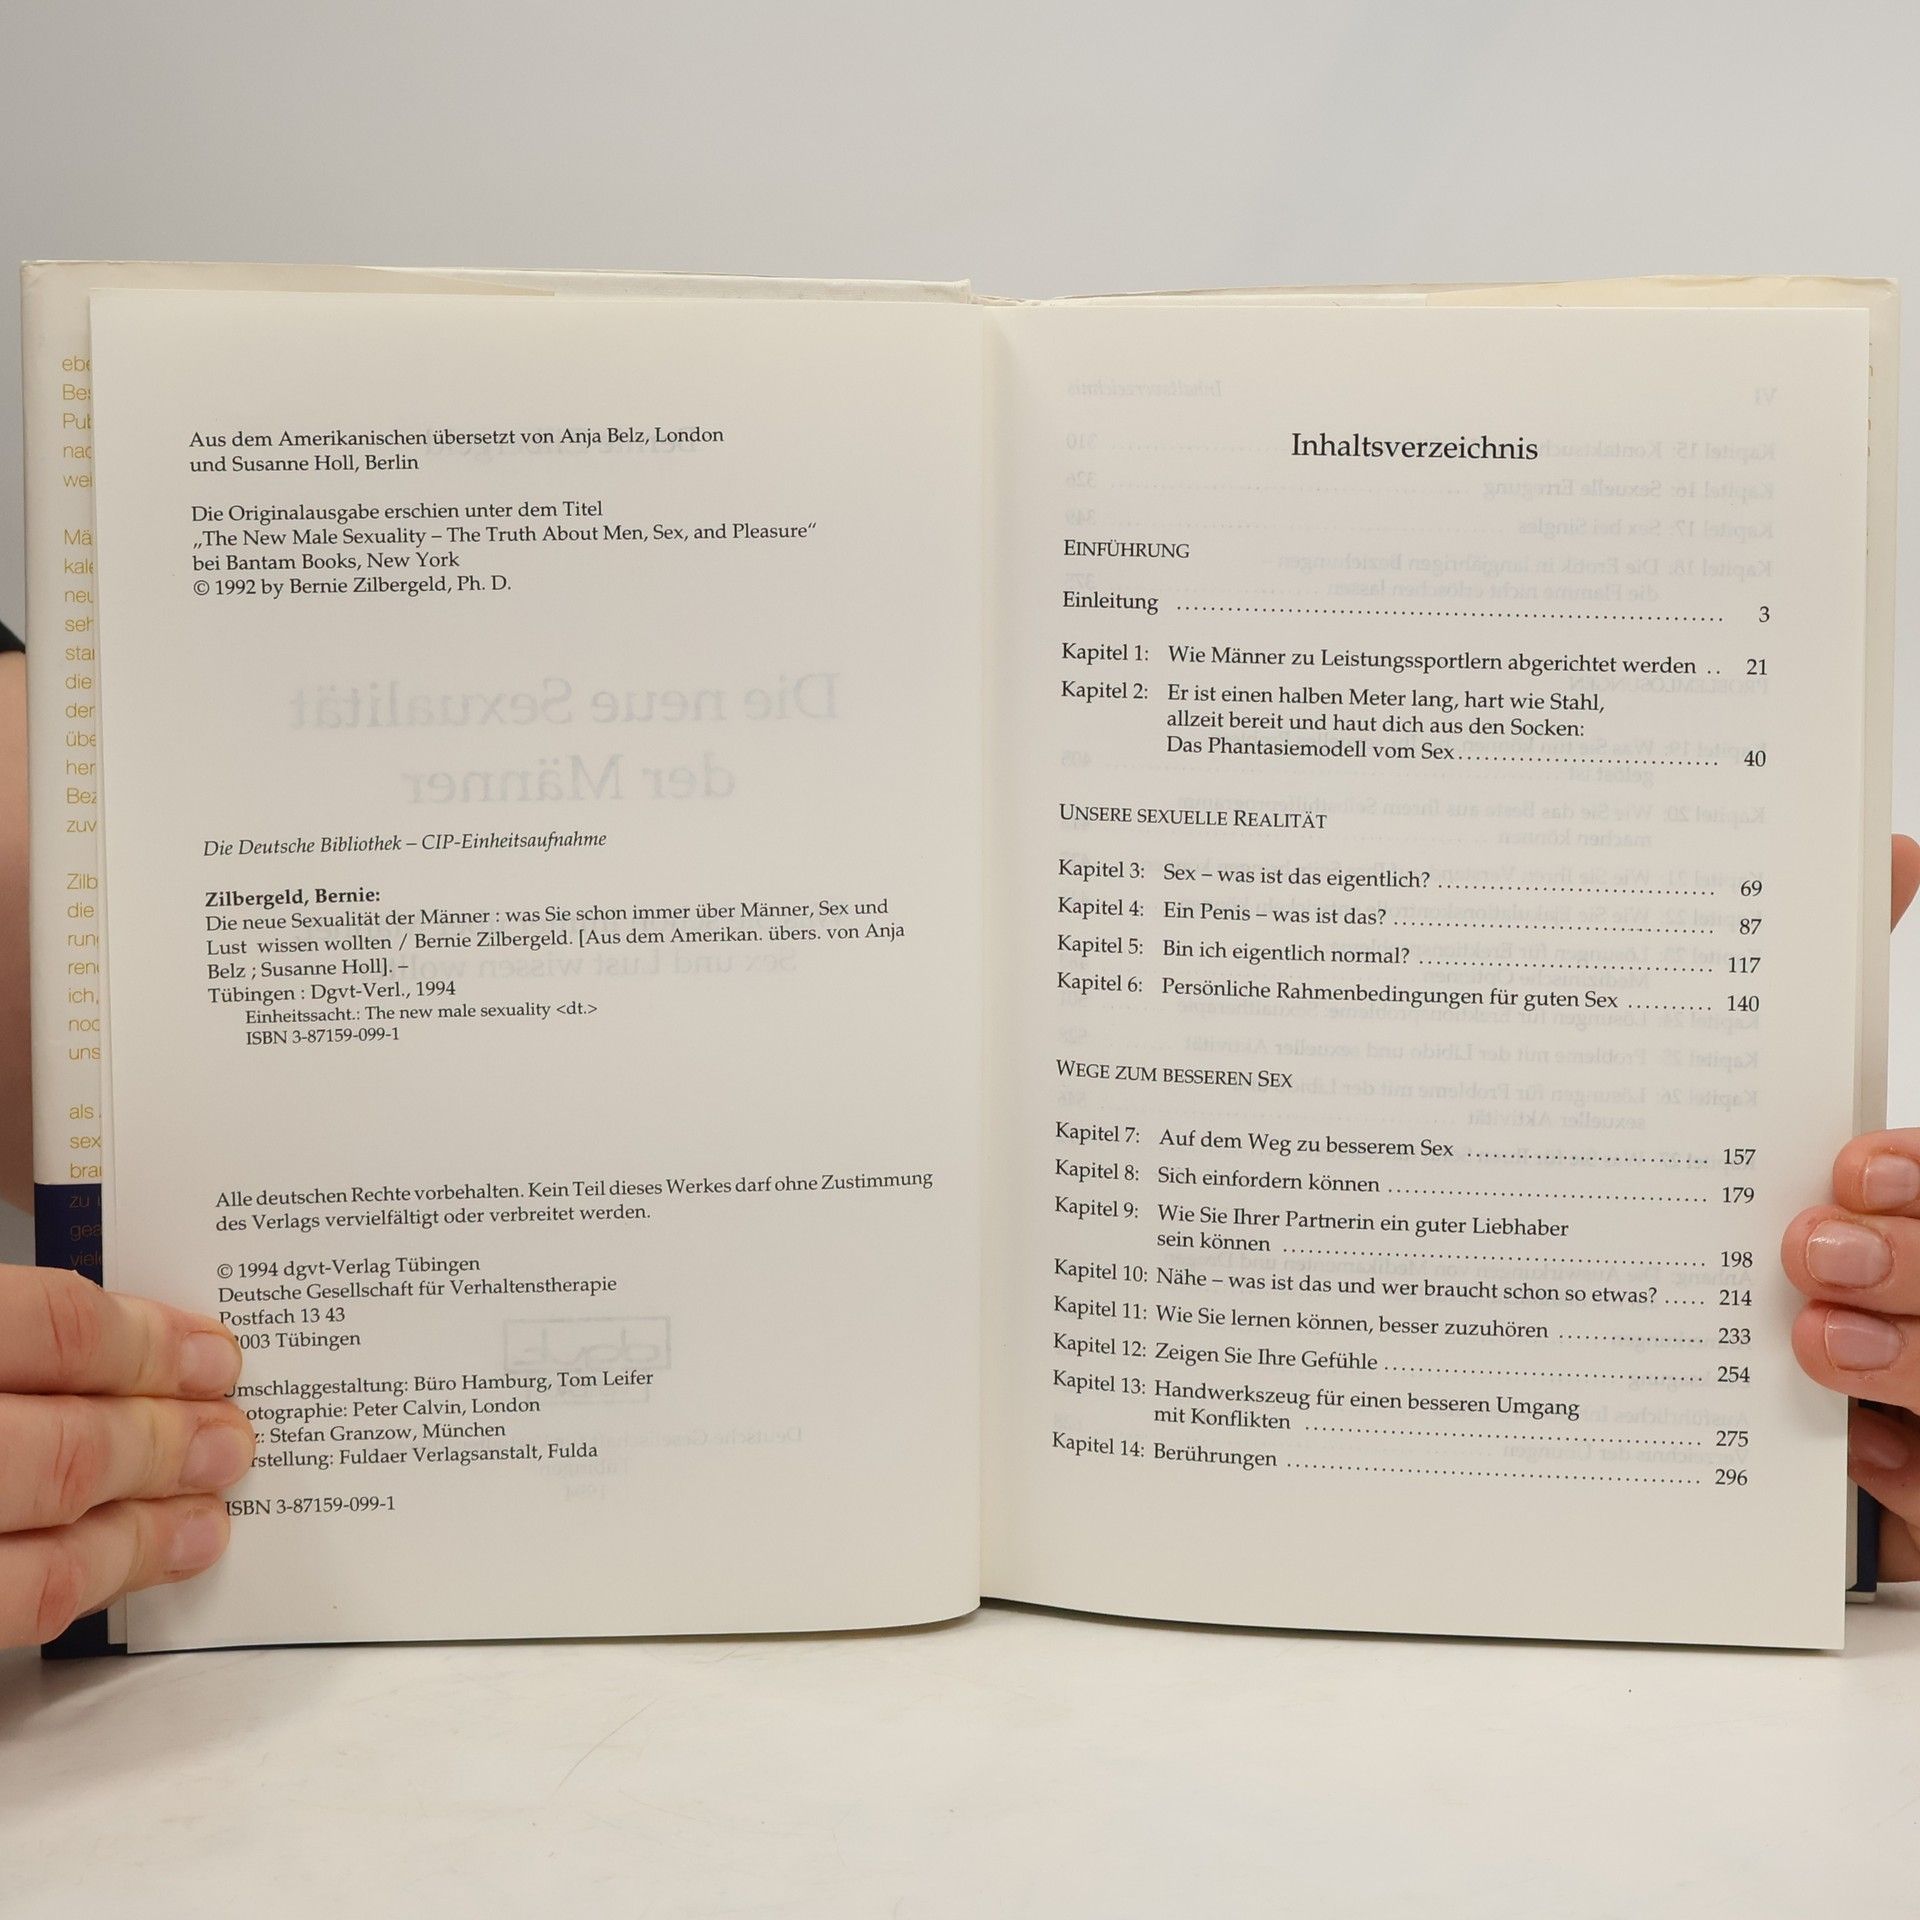 Aus dem Amerikanischen übersetzt von Anja Belz, London
und Susanne Holl, Berlin
Die Originalausgabe erschien unter dem Titel
„The New Male Sexuality – The Truth About Men, Sex, and Pleasure“
bei Bantam Books, New York
© 1992 by Bernie Zilbergeld, Ph. D.
Die Deutsche Bibliothek – CIP-Einheitsaufnahme
Zilbergeld, Bernie:
Die neue Sexualität der Männer : was Sie schon immer über Männer, Sex und
Lust wissen wollten / Bernie Zilbergeld. [Aus dem Amerikan. übers. von Anja
Belz ; Susanne Holl]. –
Tübingen : Dgvt-Verl., 1994
Einheitssacht.: The new male sexuality <dt.>
ISBN 3-87159-099-1
Alle deutschen Rechte vorbehalten. Kein Teil dieses Werkes darf ohne Zustimmung
des Verlags vervielfältigt oder verbreitet werden.
© 1994 dgvt-Verlag Tübingen
Deutsche Gesellschaft für Verhaltenstherapie
Postfach 13 43
003 Tübingen
mschlaggestaltung: Büro Hamburg, Tom Leifer
otographie: Peter Calvin, London
z: Stefan Granzow, München
rstellung: Fuldaer Verlagsanstalt, Fulda
ISBN 3-87159-099-1
Inhaltsverzeichnis
EINFÜHRUNG
Einleitung ........ 3
Kapitel 1: Wie Männer zu Leistungssportlern abgerichtet werden .. 21
Kapitel 2: Er ist einen halben Meter lang, hart wie Stahl,
allzeit bereit und haut dich aus den Socken:
Das Phantasiemodell vom Sex ........ 40
UNSERE SEXUELLE REALITÄT
Kapitel 3: Sex – was ist das eigentlich? ........ 69
Kapitel 4: Ein Penis – was ist das? ........ 87
Kapitel 5: Bin ich eigentlich normal? ........ 117
Kapitel 6: Persönliche Rahmenbedingungen für guten Sex ........ 140
WEGE ZUM BESSEREN SEX
Kapitel 7: Auf dem Weg zu besserem Sex ........ 157
Kapitel 8: Sich einfordern können ........ 179
Kapitel 9: Wie Sie Ihrer Partnerin ein guter Liebhaber
sein können ........ 198
Kapitel 10: Nähe – was ist das und wer braucht schon so etwas? ..... 214
Kapitel 11: Wie Sie lernen können, besser zuzuhören ........ 233
Kapitel 12: Zeigen Sie Ihre Gefühle ........ 254
Kapitel 13: Handwerkszeug für einen besseren Umgang
mit Konflikten ........ 275
Kapitel 14: Berührungen ........ 296